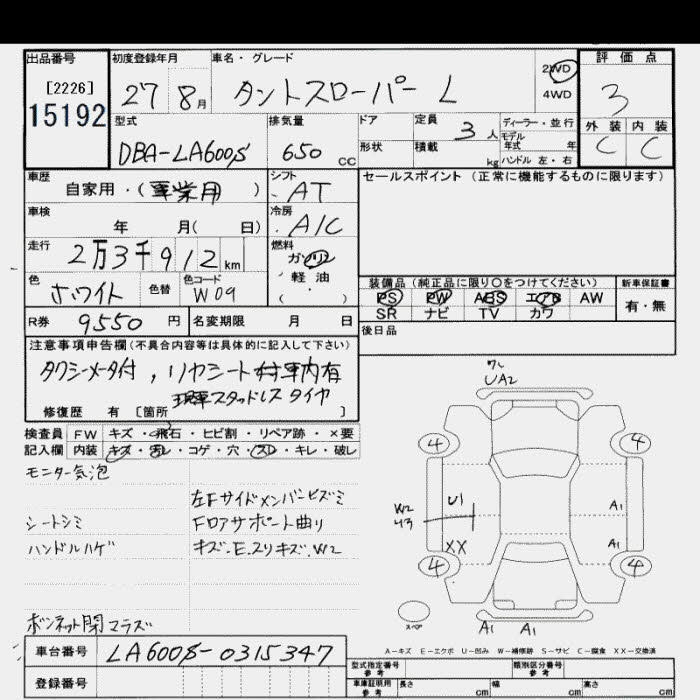 出品番号
[2226]
15192
初度登録年月
27 8月
車名・グレード
タントスローパー L
2WD
4WD
評価点
3
外装 内装
C C
型式
DBA-LA600S
排気量
650 cc
ドア
形状
定員
3人
積載
kg
ディーラー・並行
モデル
年式 年
ハンドル 左・右
車歴
自家用・(事業用)
シフト
AT
セールスポイント(正常に機能するものに限ります)
車検
年 月( 日)
冷房
A/C
走行
2万3千912km
燃料
ガソリン
軽油
( )
色
ホワイト
色替
色コード
W09
装備品(純正品に限り○をつけてください)
新車保証書
PS PW ABS エアB AW
SR ナビ TV カワ
有・無
R券
9550円
名変期限 月 日
後日品
注意事項申告欄(不具合内容等は具体的に記入して下さい)
タクシーメータ付，リヤシート車内有
現車スタッドレスタイヤ
修復歴 有 [箇所 ]
検査員
記入欄
FW キズ・飛石・ヒビ割・リペア跡・×要
内装 キズ・汚レ・コゲ・穴・スレ・キレ・破レ
モニター気泡
左Fサイドメンバーヒズミ
シートシミ
Fロアサポート曲り
ハンドルハゲ
キズ・E・スリキズ・W2
ボンネット閉マラズ
ワレ
UA2
4 4
W2
U1
XX
A1
A1
4 4
スペア
A1 A1
A-キズ E-エクボ U-凹み W-補修跡 S-サビ C-腐食 XX-交換済
車台番号
LA600S-0315347
登録番号
型式指定番号
参考
類別区分番号
参考
車庫証明用
参考
長さ cm
幅 cm
高さ cm